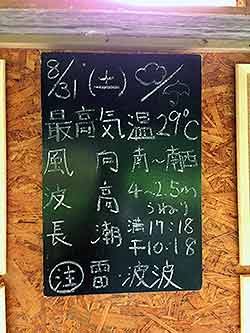 8/31
最高気温29℃
風向 南〜南西
波高 4〜2.5m
うねり
長潮 満17:18
干10:18
注 雷・波波